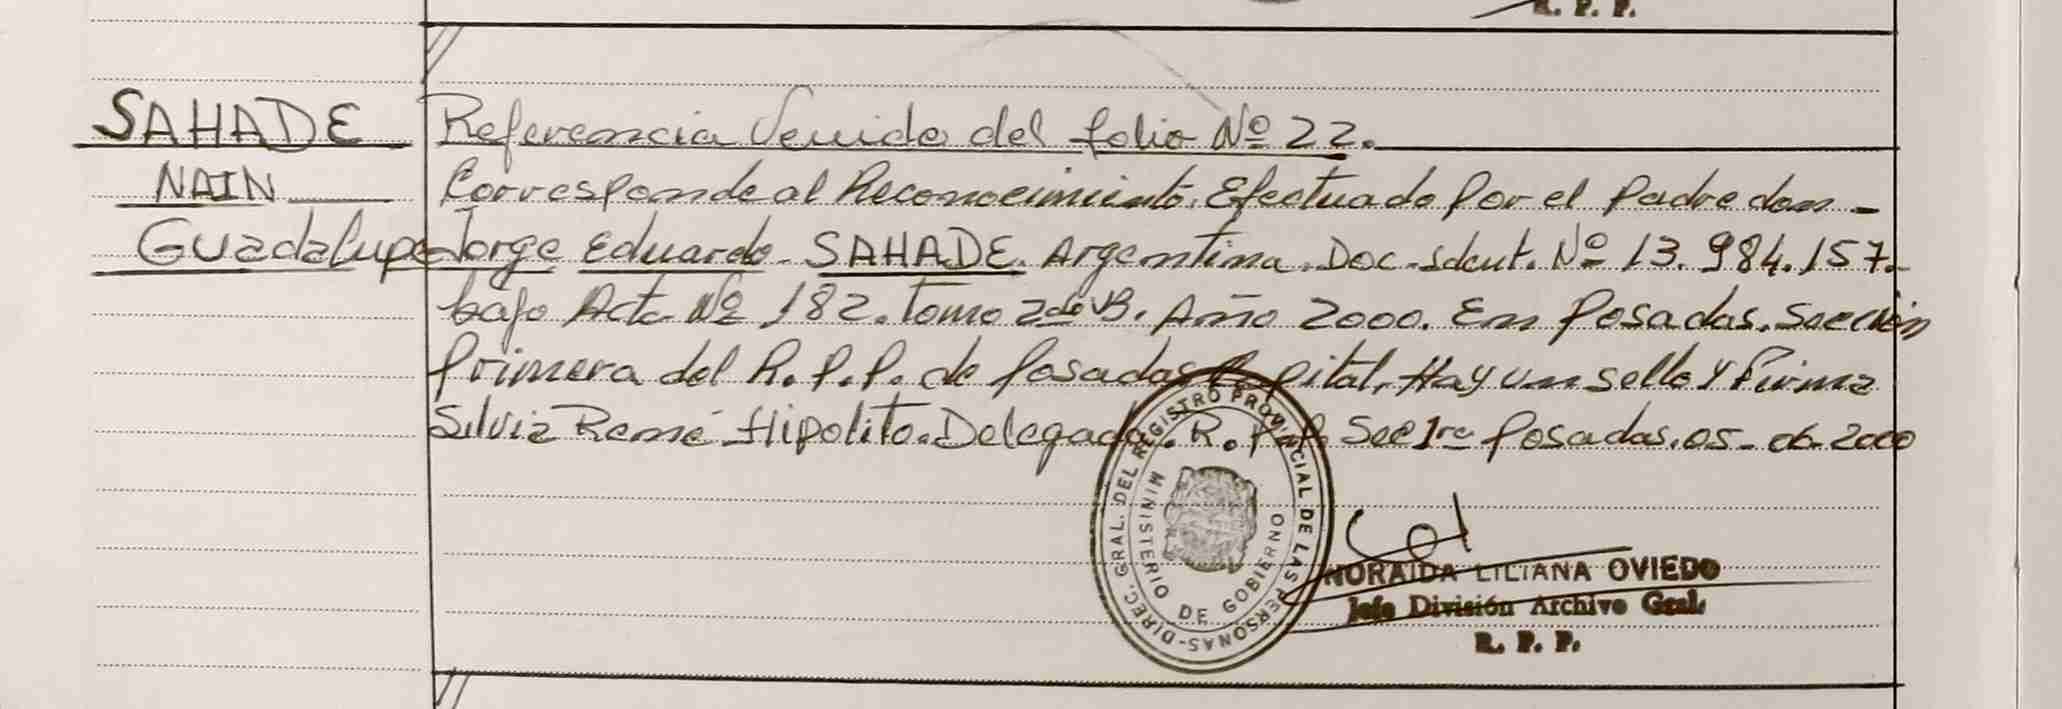 R. P. P.
SAHADE
NAIN
Guadalupe
Referencia Venida del folio Nº 22.
Corresponde al Reconocimiento. Efectuado Por el Padre don -
Jorge Eduardo - SAHADE. Argentina. Doc. Ident. Nº 13.984.157.-
bajo Acta Nº 182. Tomo 2do B. Año 2000. En Posadas. Sección
Primera del R.P.P. de Posadas Capital. Hay un sello y Firma
Silvia René Hipolito. Delegada. R. P. P. Sec 1ra Posadas. 05-06-2000
DIREC. GRAL. DEL REGISTRO PROVINCIAL DE LAS PERSONAS-
MINISTERIO DE GOBIERNO
NORAIDA LILIANA OVIEDO
Jefe División Archivo Gral.
R. P. P.